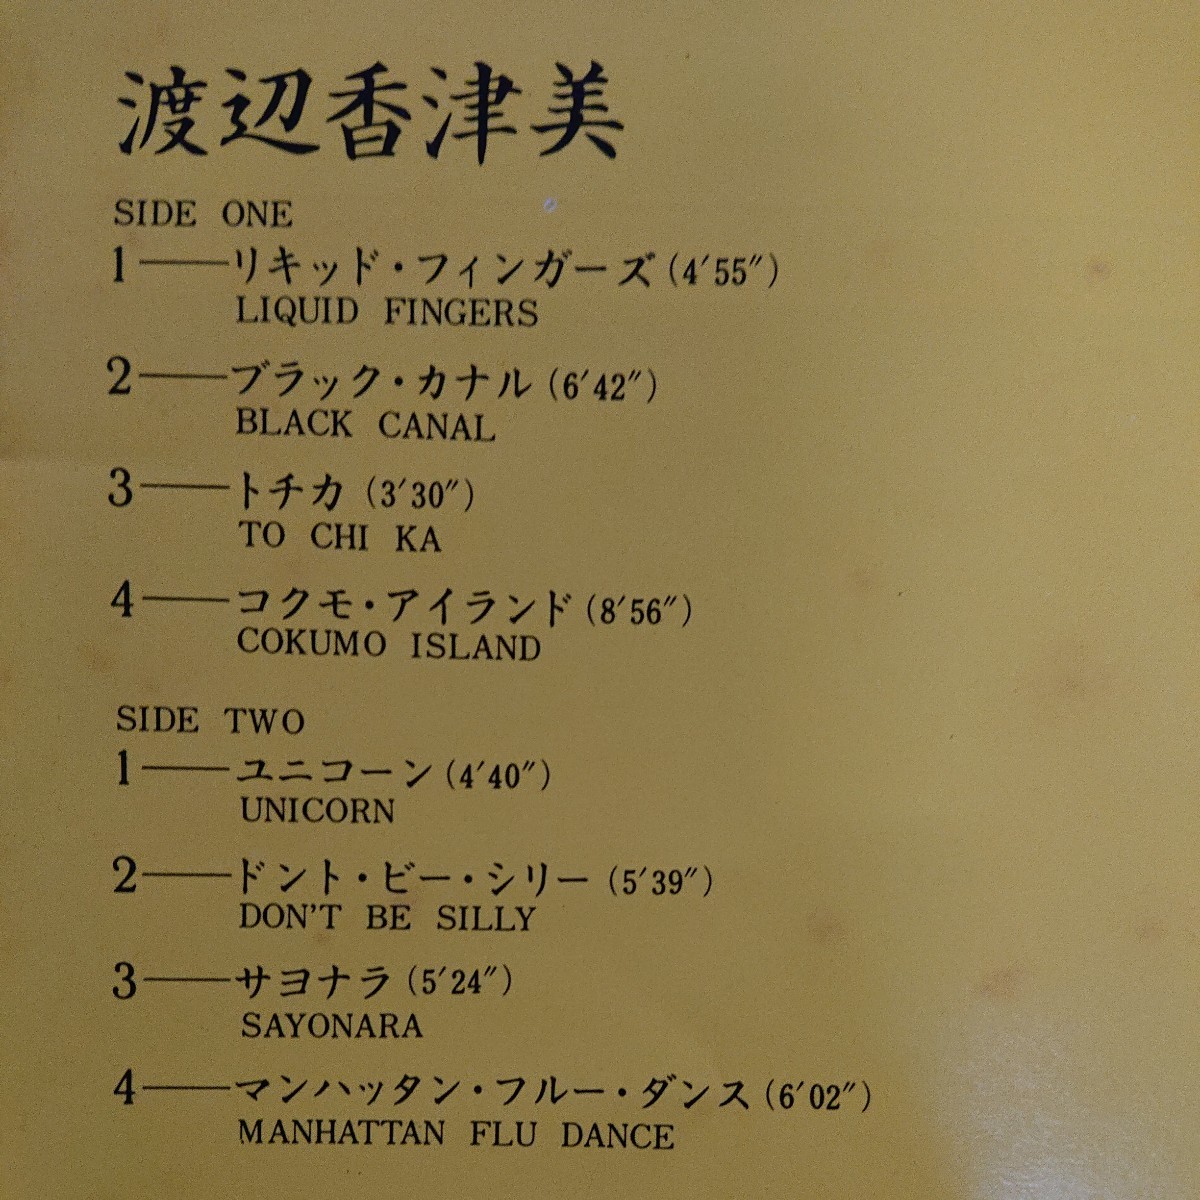 渡辺香津美
SIDE ONE
1——リキッド・フィンガーズ(4′55″)
LIQUID FINGERS
2——ブラック・カナル(6′42″)
BLACK CANAL
3——トチカ(3′30″)
TO CHI KA
4——コクモ・アイランド(8′56″)
COKUMO ISLAND
SIDE TWO
1——ユニコーン(4′40″)
UNICORN
2——ドント・ビー・シリー(5′39″)
DON'T BE SILLY
3——サヨナラ(5′24″)
SAYONARA
4——マンハッタン・フルー・ダンス(6′02″)
MANHATTAN FLU DANCE